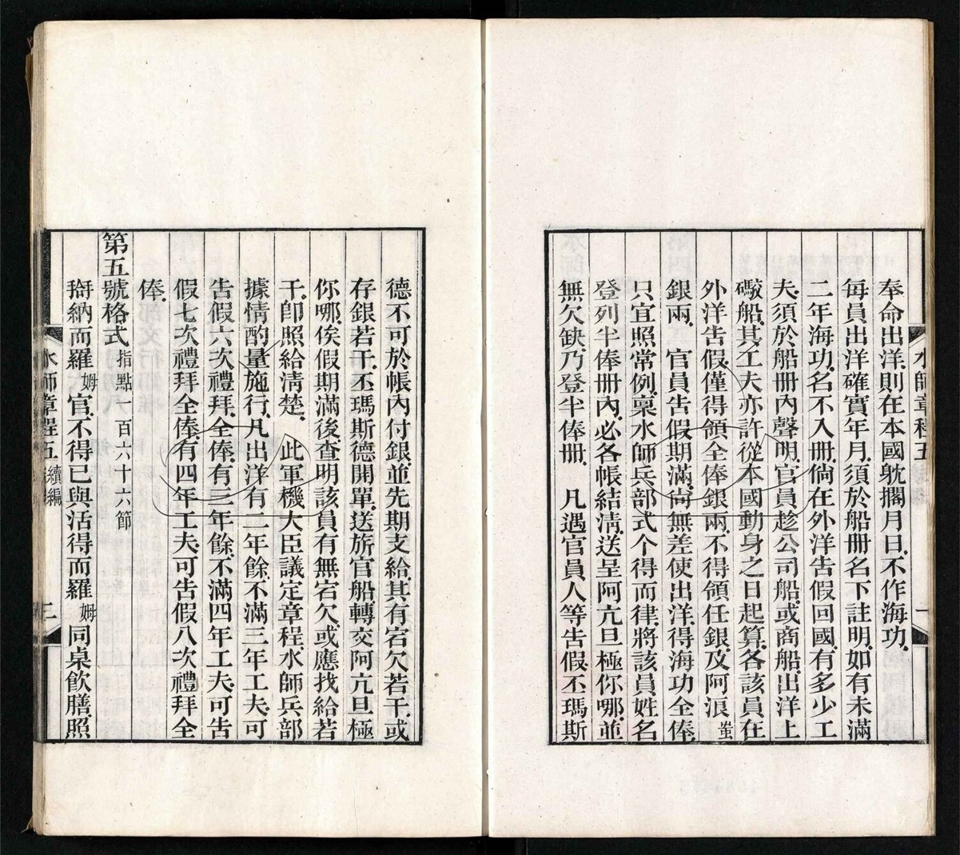 奉命出洋、則在本國躭擱月日、不作海功、
每員出洋確實年月、須於船冊名下註明、如有未滿
二年海功、名不入冊、倘在外洋告假回國、有多少工
夫、須於船冊內聲明、官員趁公司船、或商船、出洋上
礮船、其工夫亦許從本國動身之日起算、各該員在
外洋告假、僅得領全俸銀兩、不得領任銀、及阿浪
銀兩、 官員告假期滿、尚無差使出洋、得海功全俸
只宜照常例、稟水師兵部式个得而律、將該員姓名
登列半俸冊內、必各帳結清、送呈阿亢旦極你哪並
無欠缺、乃登半俸冊、 凡遇官員人等告假、丕瑪斯
水師章程五 一
德、不可於帳內付銀、並先期支給其有宕欠若干、或
存銀若干、丕瑪斯德開單、送旂官船轉交阿亢旦極
你哪、俟假期滿後、查明該員有無宕欠、或應找給若
干、卽照給清楚、 此軍機大臣議定章程、水師兵部
據情酌量施行、凡出洋有二年餘、不滿三年工夫、可
告假六次禮拜、全俸、有三年餘、不滿四年工夫、可告
假七次禮拜全俸、有四年工夫、可告假八次禮拜全
俸、
第五號格式 指點一百六十六節
搿納而羅姆官、不得已與活得而羅姆同桌飲膳、照
水師章程五 續編 二